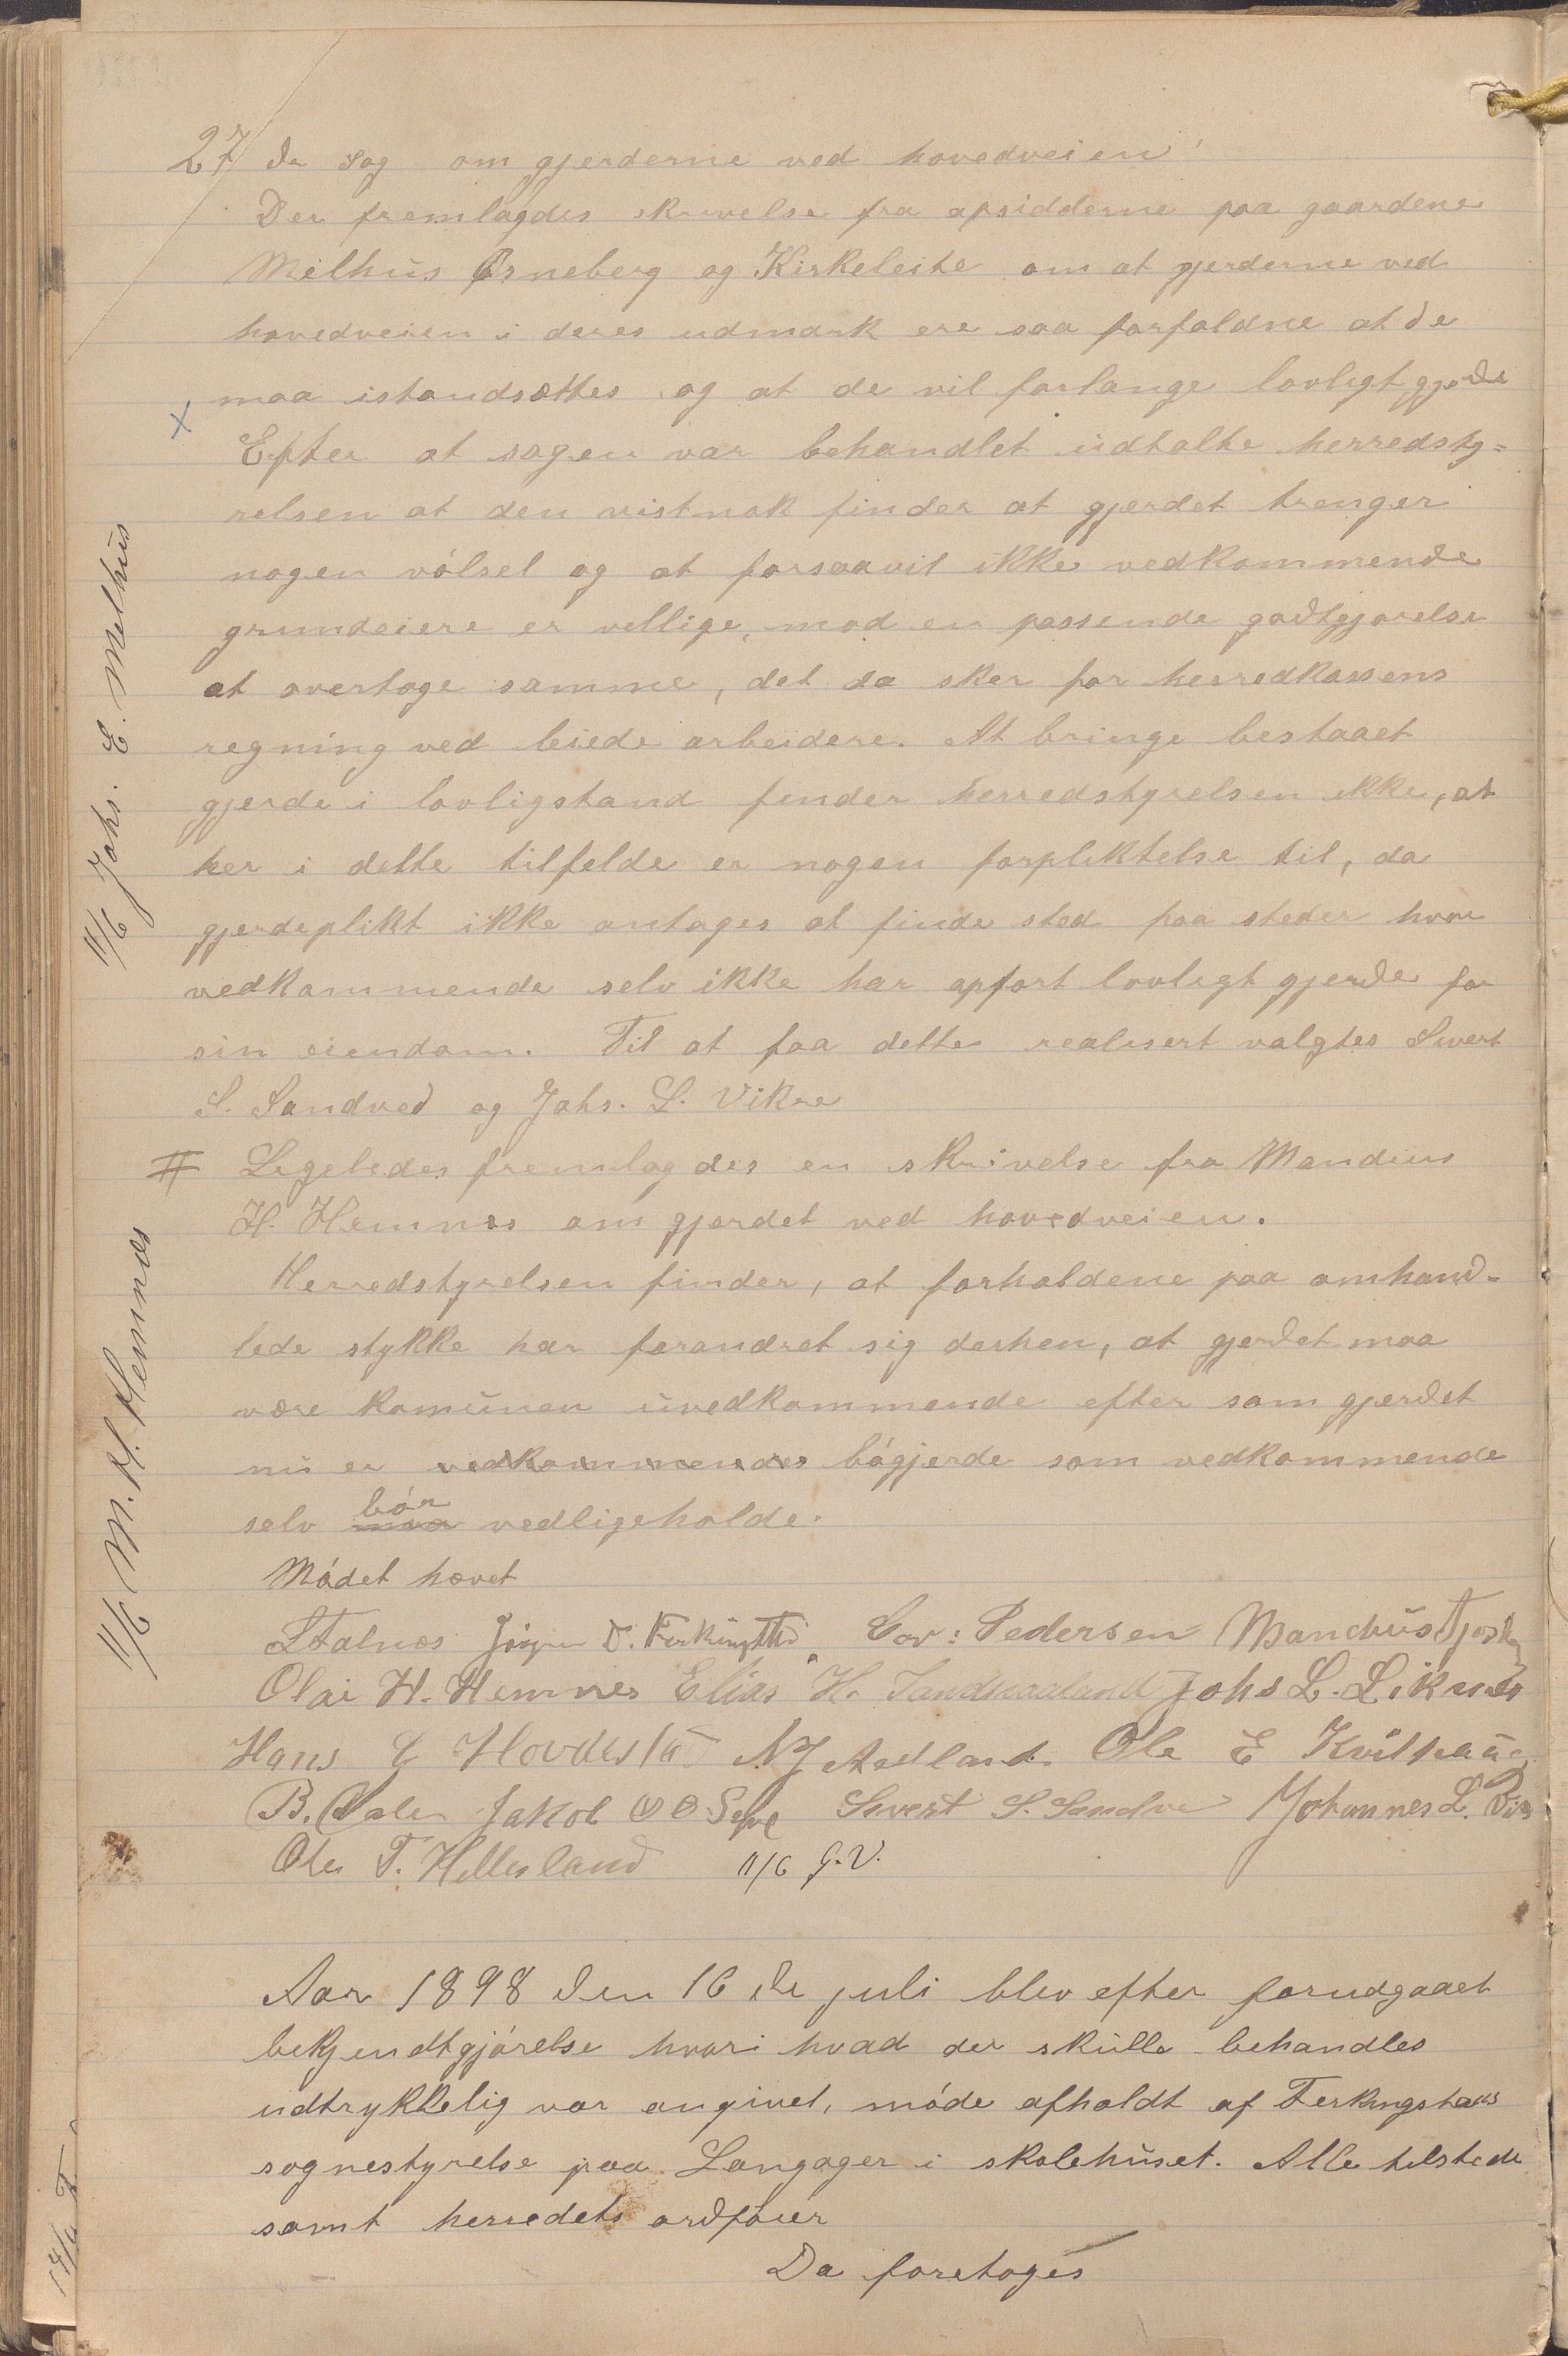 27 de Sag om gjerderne ved hovedveien
Der fremlagdes skrivelse fra opsidderne paa gaardene
Melhus Ørneberg og Kirkeleite om at gjerderne ved
hovedveien i deres udmark ere saa forfaldne at de
maa istandsættes og at de vil forlange lovligt gjerde
Efter at sagen var behandlet udtalte herredsty=
relsen at den vistnok finder at gjerdet trenger
nogen vólsel og at forsaavit ikke vedkommende
grundeiere er vellige, mod en passende godtgjorelse
at overtage samme, det da sker for herredkassens
regning ved leiede arbeidere. At bringe bestaaet
gjerde i lovligstand finder herredstyrelsen ikke, at
her i dette tilfelde er nogen forpliktelse til, da
gjerdeplikt ikke antages at finde sted paa steder hvor
vedkommende selv ikke har opfort lovligt gjerde for
sin eiendom. Til at faa dette realisert valgtes Sivert
S. Sandved og Johs. L. Vikre
# Legeledes fremlagdes en skrivelse fra Mandius
H. Hemnes om gjerdet ved hovedveien.
Herredstyrelsen finder, at forholdene paa omhand-
lede stykke har forandret sig derhen, at gjerdet maa
være komunen uvedkommende efter som gjerdet
nu er vedkommendes bógjerde som vedkommende
selv maa bór vedligeholde.
Módet hævet
L Falnes Jörgen D. Ferkingstad Cor: Pedersen Mandius
Olai H. Hemnes Elias H. Johs L. Liknes
Hans E Hovdestu N. J Aadland Ole E Kvilhaug
B. Dale Jakob O O Sivert S. Sandve Johannes L.
Ole T. Hellesland 11/6 J.V.
Aar 1898 den 16 de juli blev efter forudgaaet
bekjendtgjórelse hvori hvad der skulle behandles
udtrykkelig var angivet, móde afholdt af Ferkingstads
sognestyrelse paa Langager i skolehuset. Alle tilstede
samt herredets ordforer
Da foretoges
11/6 Johs. E. Melhus
11/6 M. H. Hemnes